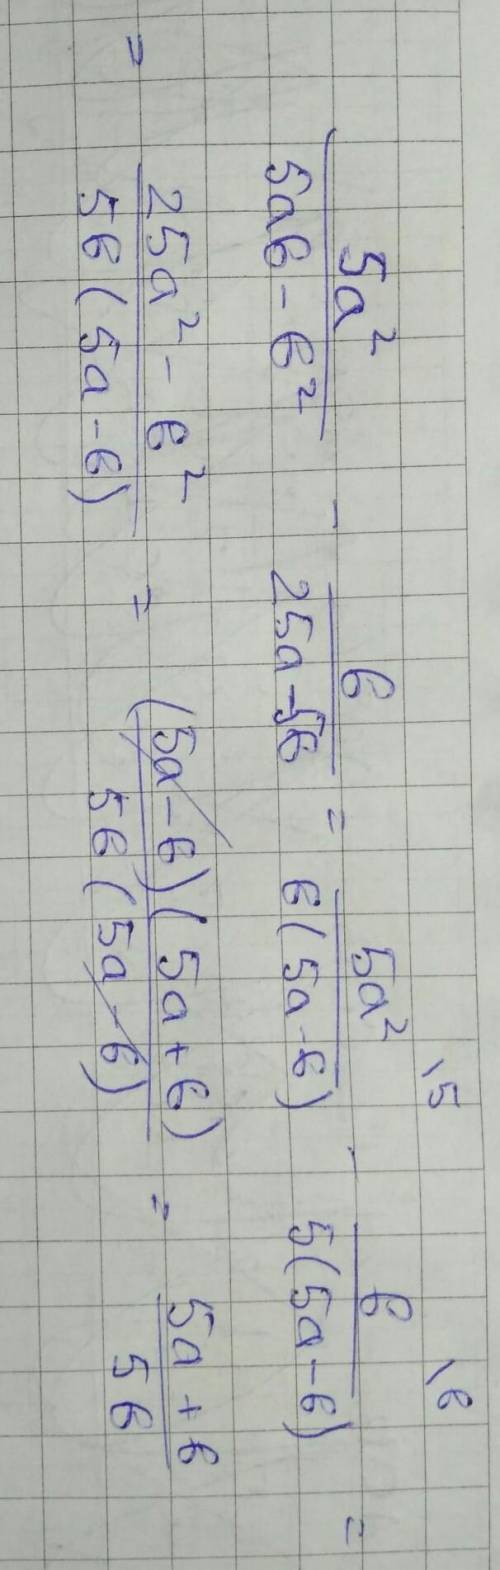 5a²/(5ab - b²) - b/(25a - 5b) = 5a²/(b(5a - b)) \5 - b/(5(5a - b)) \b =
= (25a² - b²)/(5b(5a - b)) = ((5a - b)(5a + b))/(5b(5a - b)) = (5a + b)/(5b)